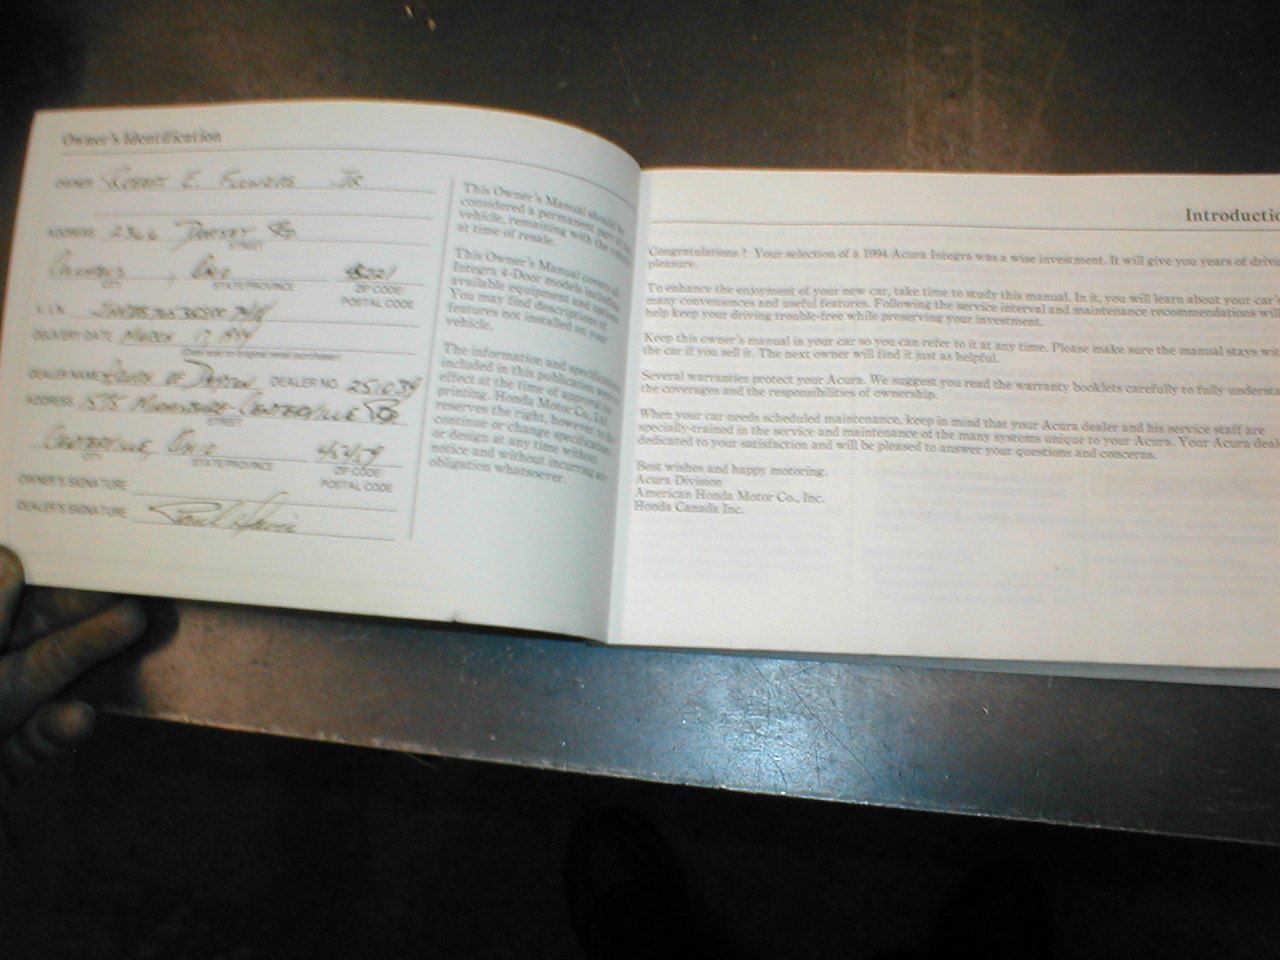 Owner's Identification
OWNER Robert E. Jr
ADDRESS 2366 Dorset Rd
STREET
Columbus, Ohio 43221
CITY STATE/PROVINCE ZIP CODE
POSTAL CODE
V.I.N.
DELIVERY DATE March 17 1994
(Date sold to original retail purchaser)
DEALER NAME of Dayton DEALER NO. 251039
ADDRESS 1575 Miamisburg-Centerville Rd
STREET
Centerville Ohio 45459
CITY STATE/PROVINCE ZIP CODE
POSTAL CODE
OWNER'S SIGNATURE
DEALER'S SIGNATURE
This Owner's Manual should be
considered a permanent part of the
vehicle, remaining with the vehicle
at time of resale.
This Owner's Manual covers all
Integra 4-Door models including
available equipment and options.
You may find descriptions of
features not installed on your
vehicle.
The information and specifications
included in this publication were in
effect at the time of approval for
printing. Honda Motor Co., Ltd.
reserves the right, however, to dis
continue or change specifications
or design at any time without
notice and without incurring any
obligation whatsoever.
Introductio
Congratulations ! Your selection of a 1994 Acura Integra was a wise investment. It will give you years of drivin
pleasure.
To enhance the enjoyment of your new car, take time to study this manual. In it, you will learn about your car's
many conveniences and useful features. Following the service interval and maintenance recommendations will
help keep your driving trouble-free while preserving your investment.
Keep this owner's manual in your car so you can refer to it at any time. Please make sure the manual stays wit
the car if you sell it. The next owner will find it just as helpful.
Several warranties protect your Acura. We suggest you read the warranty booklets carefully to fully understa
the coverages and the responsibilities of ownership.
When your car needs scheduled maintenance, keep in mind that your Acura dealer and his service staff are
specially-trained in the service and maintenance of the many systems unique to your Acura. Your Acura deal
dedicated to your satisfaction and will be pleased to answer your questions and concerns.
Best wishes and happy motoring.
Acura Division
American Honda Motor Co., Inc.
Honda Canada Inc.